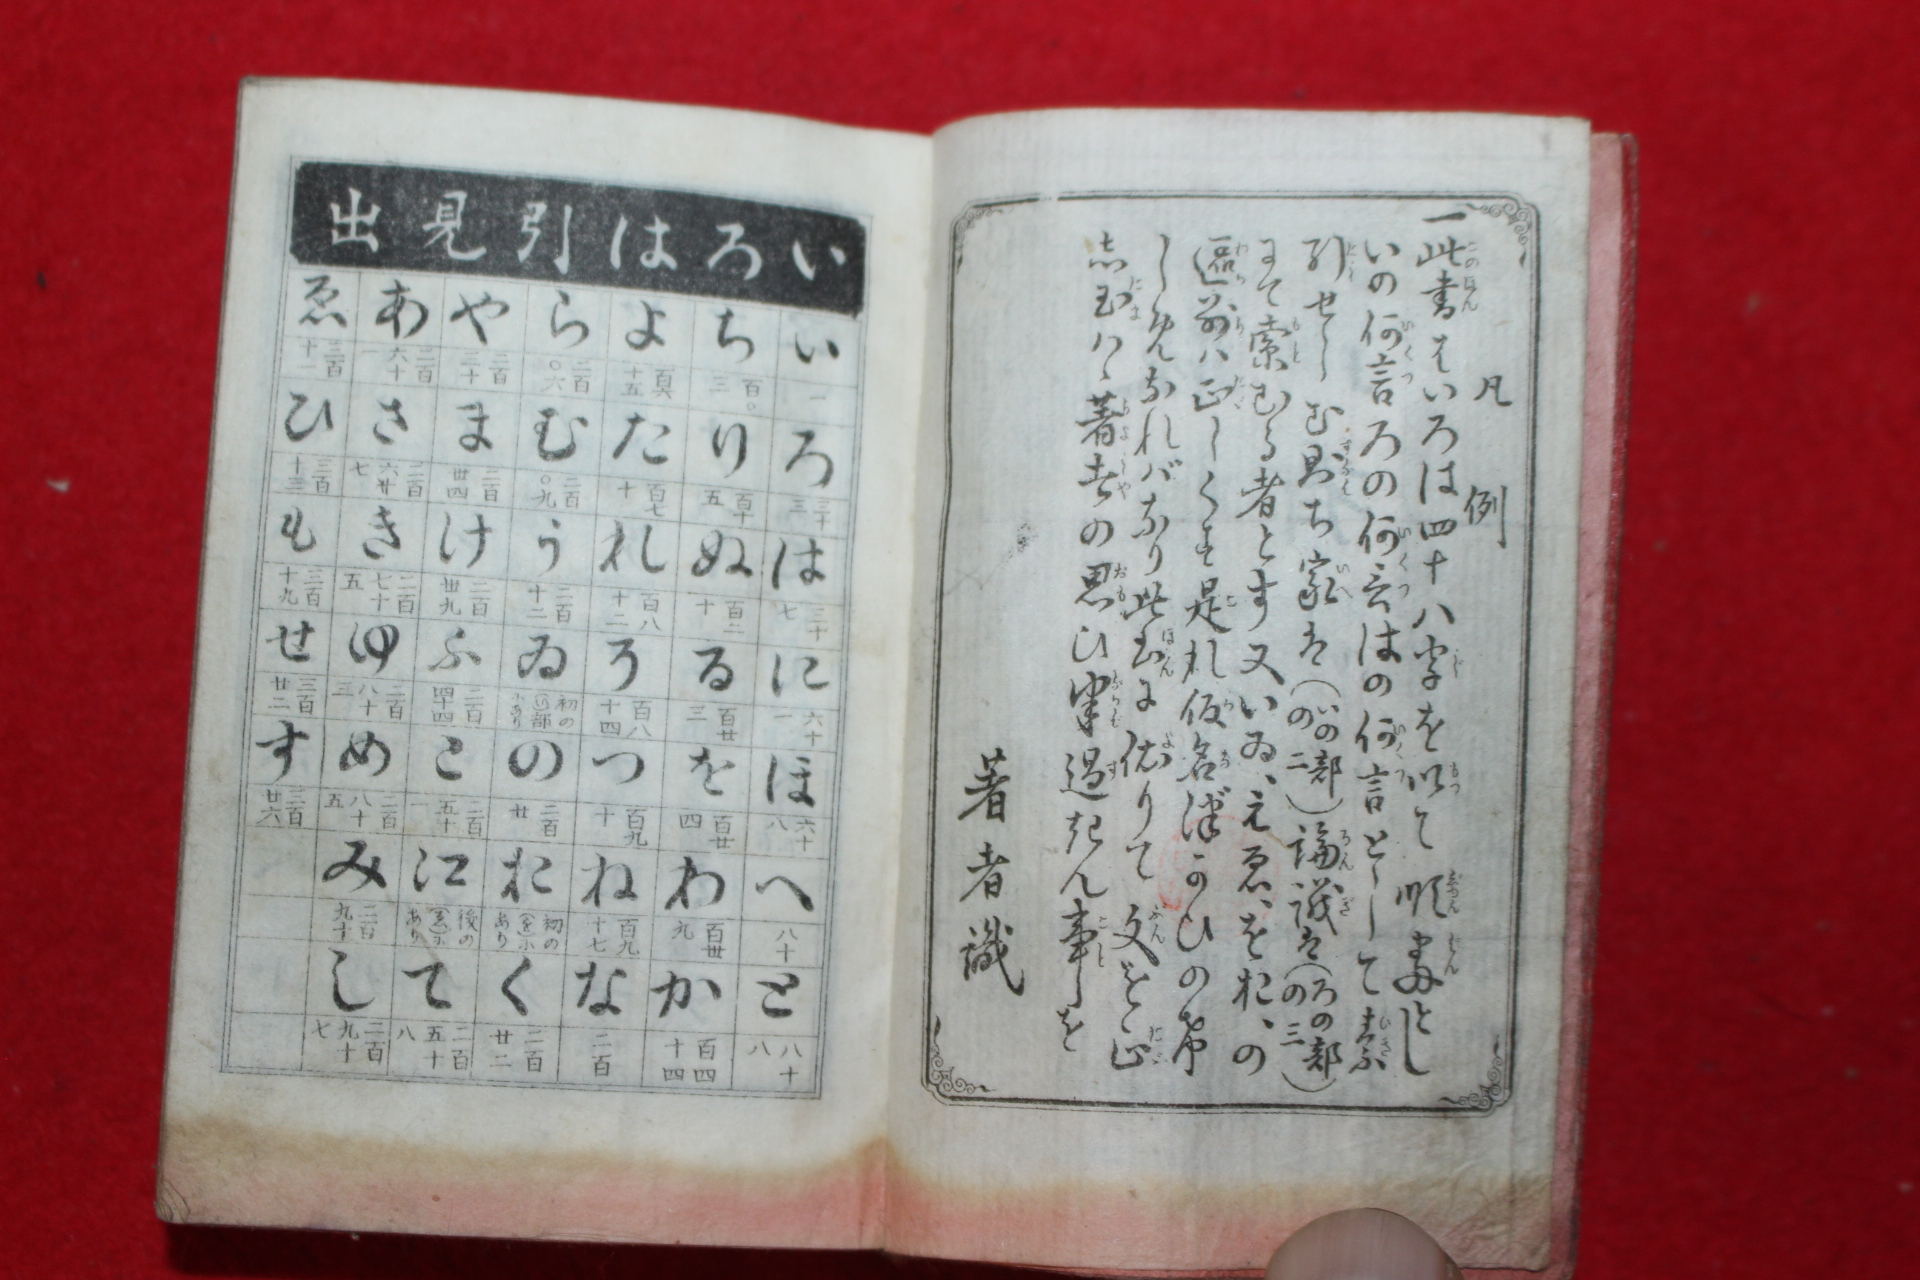 凡例
一此書はいろは四十八字を以て順番とし
いの何言ろの何言はの何言として索
引せしむ即ち家は(いの部の二)論議は(ろの部の三)
にて索むる者とす又いゐ、えゑ、をお、の
区別は正しくは是れ仮名
しめんなれバなり此書に依りて文を正
著者の思ひ半過ぎん事を
著者識
いろは引見出
い 一
ろ 三十三
は 三十七
に 六十一
ほ 六十八
へ 八十
と 八十八
ち 百〇三
り 百十五
ぬ 百二十
る 百廿三
を 百廿四
わ 百卅九
か 百四十四
よ 百六十五
た 百七十
れ 百八十二
ろ 百八十四
つ 百九十
ね 百九十七
な 二百
ら 二百〇六
む 二百〇九
う 二百十二
ゐ 初の(い)部にあり
の 二百廿
お 初の(を)にあり
く 二百廿二
や 二百三十
ま 二百卅四
け 二百卅九
ふ 二百四十四
こ 二百五十一
江 後の(ゑ)にあり
て 二百五十八
あ 二百六十一
さ 二百六十七
き 二百七十五
ゆ 二百八十三
め 二百八十五
み 二百九十
し 二百九十七
ゑ 三百十一
ひ 三百十三
も 三百十九
せ 三百廿二
す 三百廿六